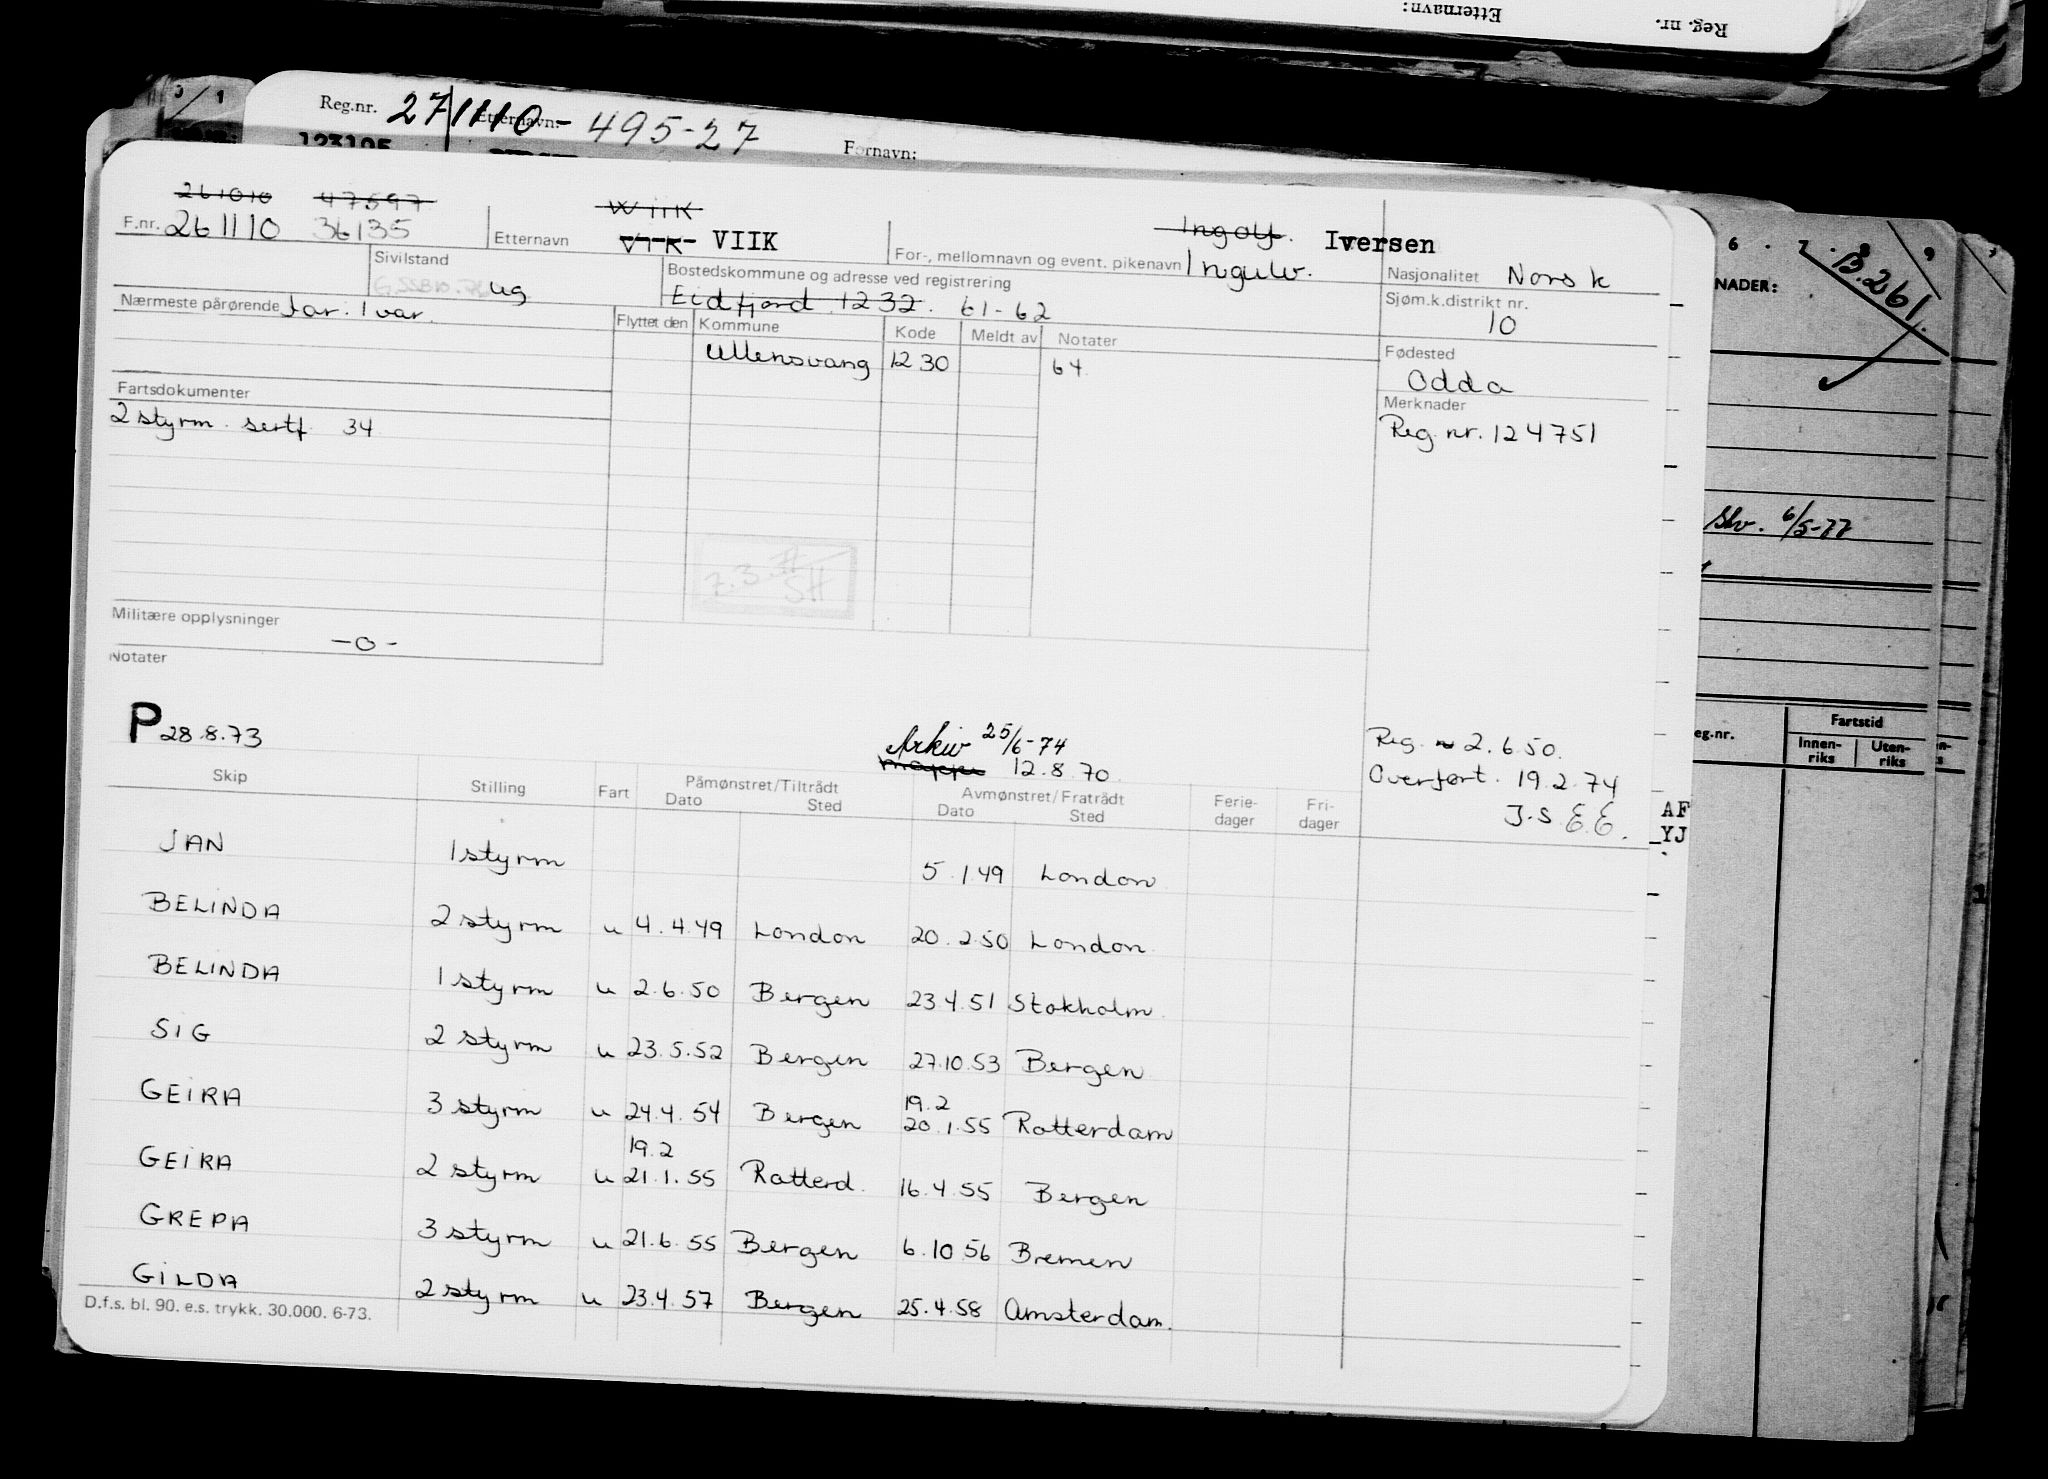 Etternavn:
Reg. nr.
Reg.nr. 271110-495-27
Etternavn:
Fornavn:
123105
261010 47597
F.nr. 261110 36135
Etternavn
Wiik
VIK VIIK
For-, mellomnavn og event. pikenavn
Ingolf. Iversen
Ingulv.
Nasjonalitet Norsk
Sivilstand
ug
Bostedskommune og adresse ved registrering
Eidfjord 1232. 61-62
Sjøm.k.distrikt nr.
10
Nærmeste pårørende Far. Ivar.
Flyttet den Kommune Kode Meldt av Notater
Ullensvang 1230 64
Fødested
Odda
Fartsdokumenter
2 styrm. sertf 34
Merknader
Reg. nr. 124751
7.3. SH
Militære opplysninger
-o-
Notater
P 28.8.73
Arkiv 25/6-74
mappe 12.8.70
Reg. 2.6.50.
Overført. 19.2.74
J.S. E.E.
Skip Stilling Fart Påmønstret/Tiltrådt Dato Sted Avmønstret/Fratrådt Dato Sted Ferie-dager Fri-dager
JAN 1 styrm 5.1.49 London
BELINDA 2 styrm u 4.4.49 London 20.2.50 London
BELINDA 1 styrm u 2.6.50 Bergen 23.4.51 Stokholm
SIG 2 styrm u 23.5.52 Bergen 27.10.53 Bergen
19.2
GEIRA 3 styrm u 24.4.54 Bergen 20.1.55 Rotterdam
19.2
GEIRA 2 styrm u 21.1.55 Rotterd. 16.4.55 Bergen
GREPA 3 styrm u 21.6.55 Bergen 6.10.56 Bremen
GILDA 2 styrm u 23.4.57 Bergen 25.4.58 Amsterdam.
D.f.s. bl. 90. e.s. trykk. 30.000. 6-73.
AF
YJ
6 . 7 . 8 9
NADER:
B.261.
Slv. 6/5-77
eg.nr.
Fartstid
Innen-riks
Uten-riks